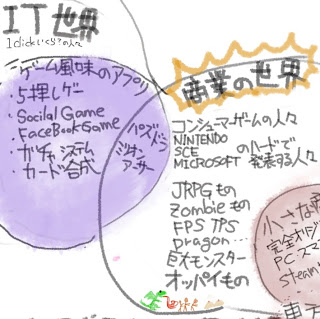 IT世界
1clickいくら?の人々
ゲーム風味のアプリ
・5押しゲー
・Socilal Game
・FaceBookGame
・ガチャシステム
・カード合成
パズドラ
ミリオン
アーサー
商業の世界
コンシューマーゲームの人々
NINTENDO
SCE
MICROSOFT
のハードで
発表する人々
JRPGもの
Zombieもの
FPS TPS
Dragon...
巨大モンスター
オッパイもの
小さな
完全オリジ
PC.スマ
steam